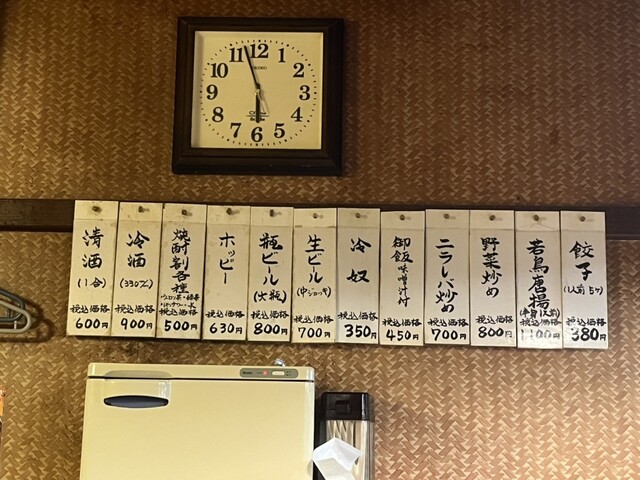 11 12 1
10 2
9 3
8 4
7 6 5
SEIKO
餃子
(1人前 5ケ)
税込価格
380円
若鳥唐揚
税込価格
1100円
野菜炒め
税込価格
800円
ニラレバ炒め
税込価格
700円
御飯
味噌汁付
税込価格
450円
冷奴
税込価格
350円
生ビール
(中ジョッキ)
税込価格
700円
瓶ビール
(大瓶)
税込価格
800円
ホッピー
税込価格
630円
焼酎割各種
税込価格
500円
冷酒
(330ml)
税込価格
900円
清酒
(1合)
税込価格
600円